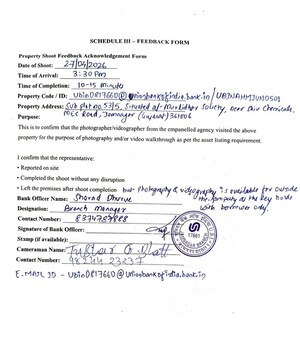 SCHEDULE III – FEEDBACK FORM
Property Shoot Feedback Acknowledgement Form
Date of Shoot: 27/04/2026
Time of Arrival: 3:30 Pm
Time of Completion: 10-15 minutes
Property Code / ID: UbinD817660@unionbankofindia.bank.in/
Property Address: Sub plot no. 53/5, Situated at Murlidhar Society, near Shiv Chemicals,
Road, Jamnagar (Gujarat) 361006
This is to confirm that the photographer/videographer from the empanelled agency visited the above
property for the purpose of photography and/or video walkthrough as per the asset listing requirement.
I confirm that the representative:
• Reported on site
• Completed the shoot without any disruption
• Left the premises after shoot completion but photography & videography is available for outside
the property as the key is with borrower only.
Bank Officer Name: Sharad Dhurve
Designation: Branch Manager
Contact Number: 8374787888
Signature of Bank Officer:
Stamp (if available):
Cameraman Name: Tushar G Bhatt
Contact Number: 98244 23237
E.MAIL ID - UbinD817660@unionbankofindia.bank.in